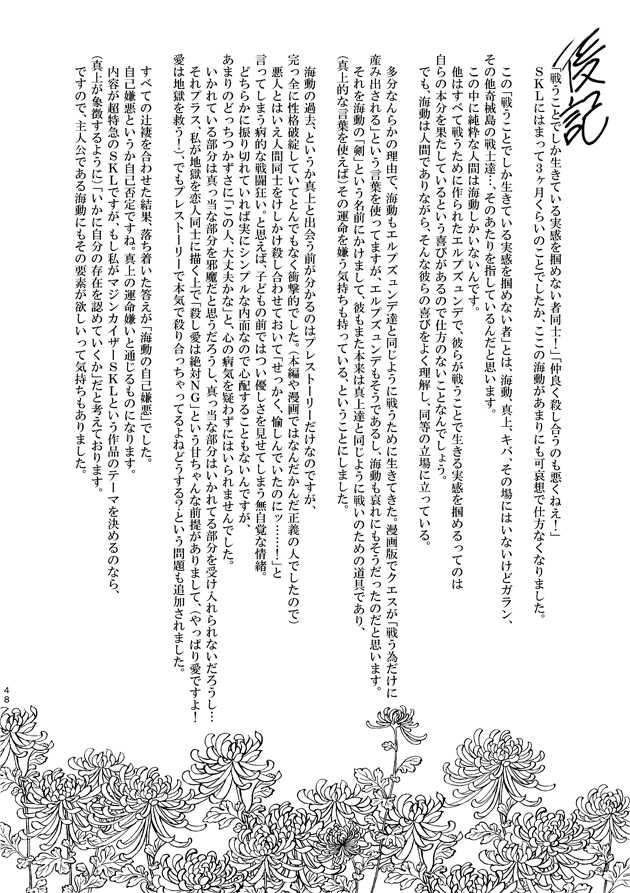 後記
「戦うことでしか生きている実感を掴めない者同士!」「仲良く殺し合うのも悪くねえ!」
SKLにはまって3ヶ月くらいのことでしたか、ここの海動があまりにも可哀想で仕方なくなりました。
この「戦うことでしか生きている実感を掴めない者」とは、海動、真上、キバ、その場にはいないけどガラン、
その他奇械島の戦士達…、そのあたりを指しているんだと思います。
この中に純粋な人間は海動しかいないんです。
他はすべて戦うために作られたエルプズュンデで、彼らが戦うことで生きる実感を掴めるってのは
自らの本分を果たしているという喜びがあるので仕方のないことなんでしょう。
でも、海動は人間でありながら、そんな彼らの喜びをよく理解し、同等の立場に立っている。
多分なんらかの理由で、海動もエルプズュンデ達と同じように戦うために生きてきた。漫画版でクエスが「戦う為だけに
産み出される」という言葉を使ってますが、エルプズュンデもそうであるし、海動も哀れにもそうだったのだと思います。
それを海動の「剣」という名前にかけまして、彼もまた本来は真上達と同じように戦いのための道具であり、
(真上的な言葉を使えば)その運命を嫌う気持ちも持っている、ということにしました。
海動の過去、というか真上と出会う前が分かるのはプレストーリーだけなのですが、
完っ全に性格破綻していてとんでもなく衝撃的でした。(本編や漫画ではなんだかんだ正義の人でしたので)
悪人とはいえ人間同士をけしかけ殺し合わせておいて「せっかく、愉しんでいたのにッ……!」と
言ってしまう病的な戦闘狂い。と思えば、子どもの前ではつい優しさを見せてしまう無自覚な情緒。
どちらかに振り切れていれば実にシンプルな内面なので心配することもないんですが、
あまりのどっちつかずさに「この人、大丈夫かな」と、心の病気を疑わずにはいられませんでした。
いかれている部分は真っ当な部分を邪魔だと思うだろうし、真っ当な部分はいかれてる部分を受け入れられないだろうし…
それプラス、私が地獄を恋人同士に描く上で「殺し愛は絶対NG」という甘ちゃんな前提がありまして、(やっぱり愛ですよ!
愛は地獄を救う!)、でもプレストーリーで本気で殺り合っちゃってるよねどうする?という問題も追加されました。
すべての辻褄を合わせた結果、落ち着いた答えが「海動の自己嫌悪」でした。
自己嫌悪というか自己否定ですね。真上の運命嫌いと通じるものになります。
内容が超特急のSKLですが、もし私がマジンカイザーSKLという作品のテーマを決めるのなら、
(真上が象徴するように)「いかに自分の存在を認めていくか」だと考えております。
ですので、主人公である海動にもその要素が欲しいって気持ちもありました。
48